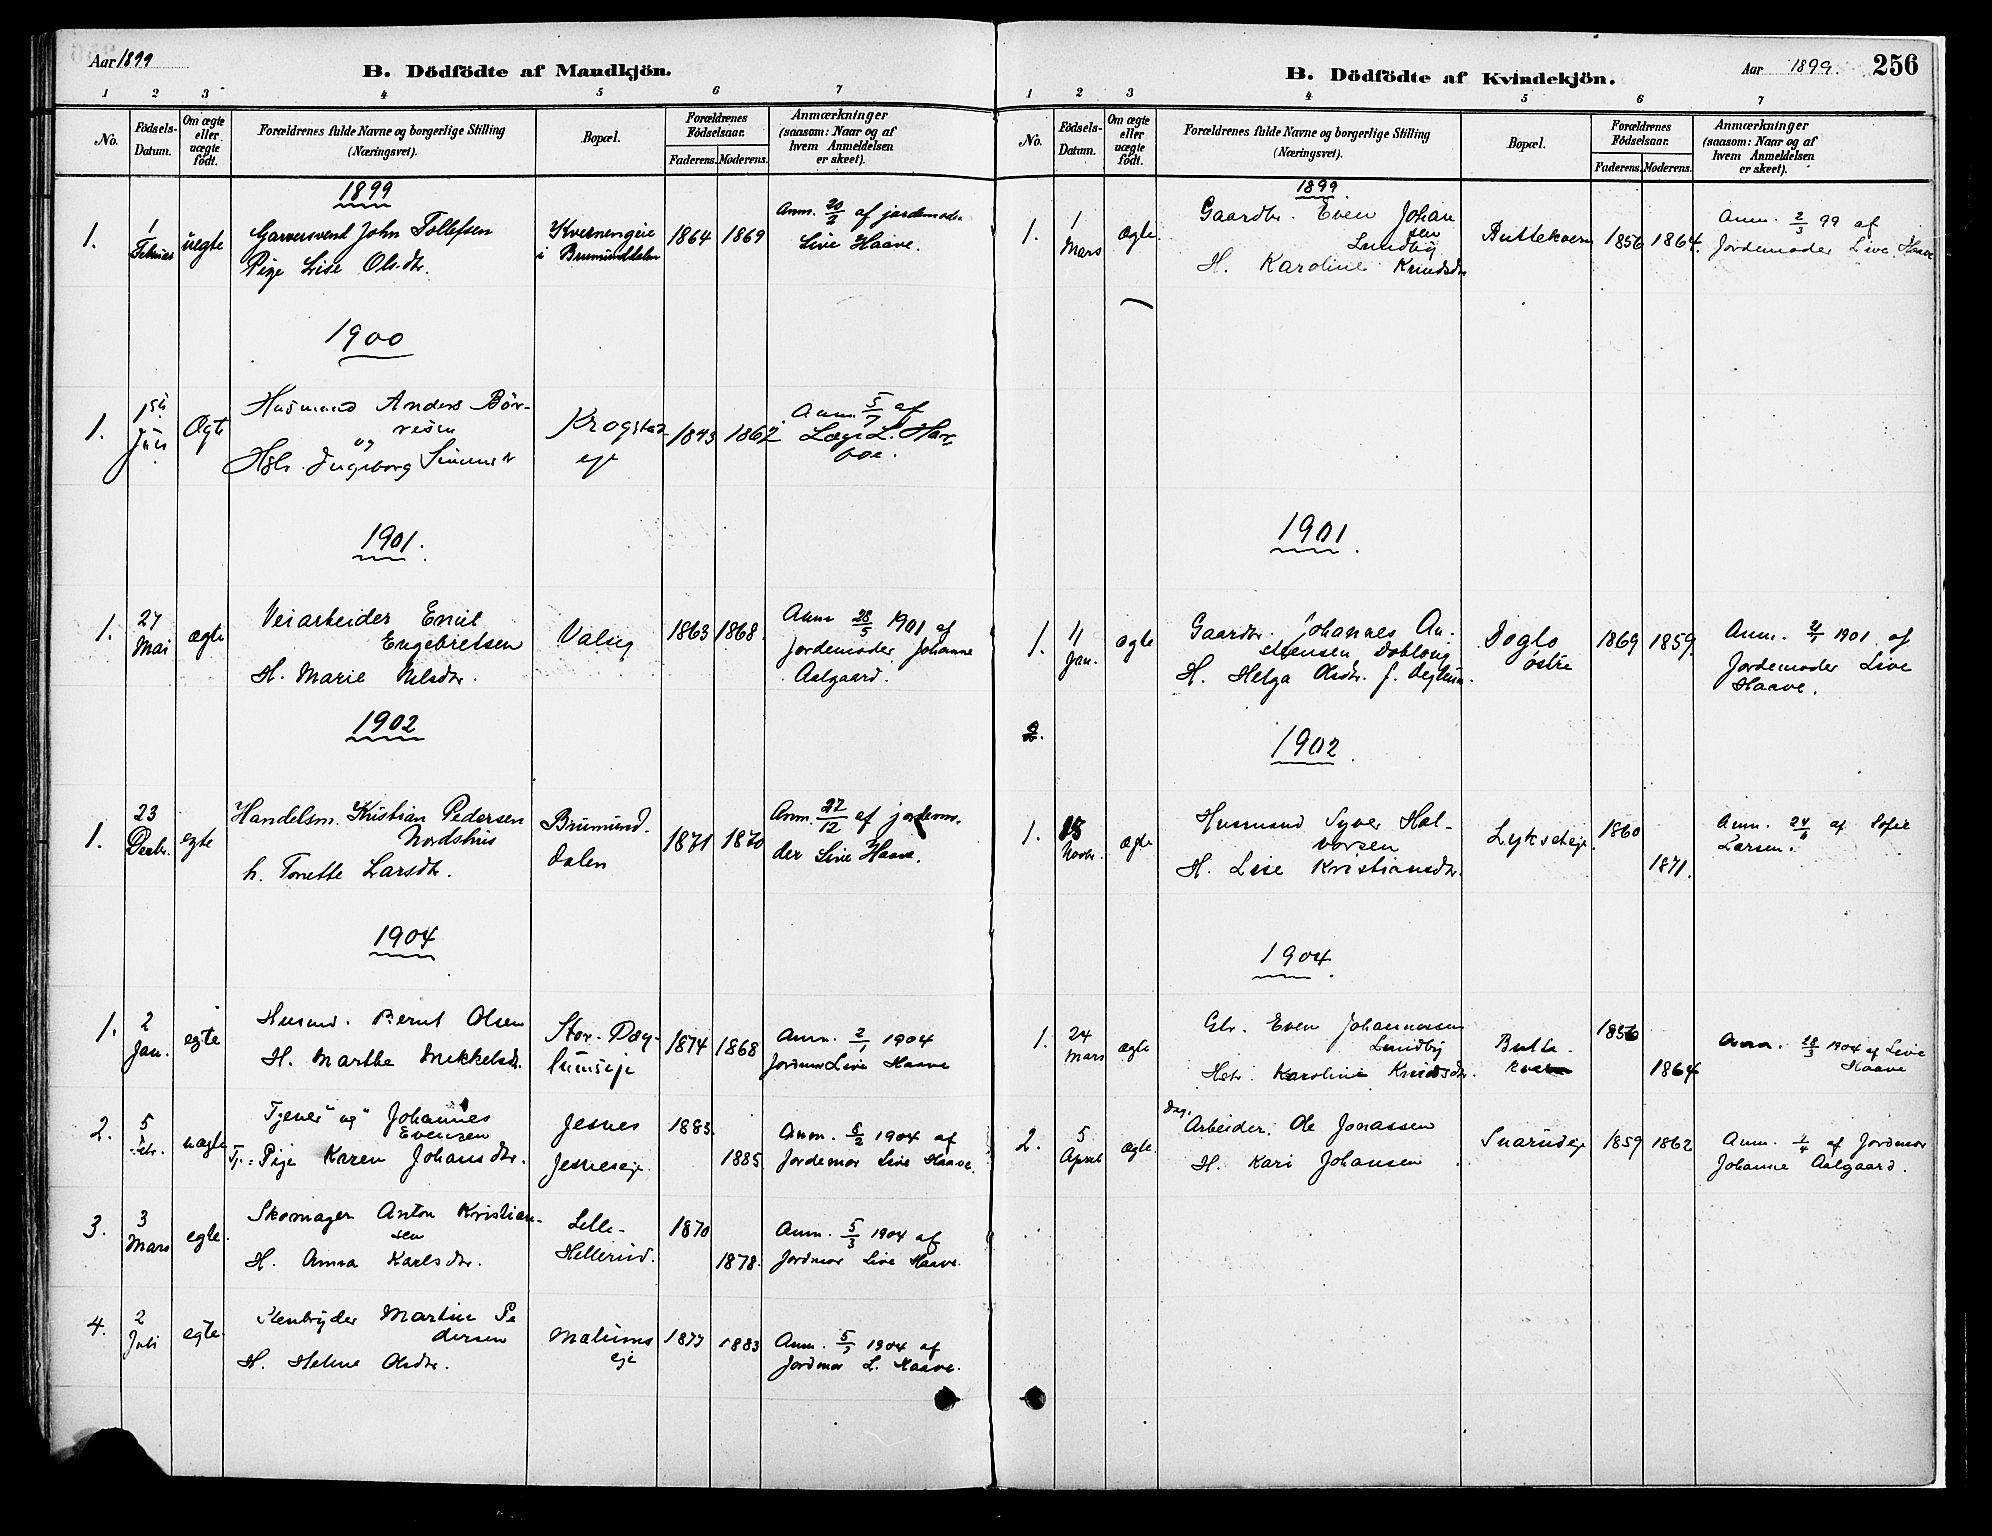 Aar 1899
B. Dödfödte af Mandkjön.
1 2 3 4 5 6 7
No.
Födsels-
Datum.
Om ægte
eller
uægte
födt.
Forældrenes fulde Navne og borgerlige Stilling
(Næringsvei).
Bopæl.
Forældrenes
Födselsaar.
Faderens. Moderens.
Anmærkninger
(saasom: Naar og af
hvem Anmeldelsen
er skeet).
1899
1. 1 Februar uegte
Garversvend John Tollefsen
Pige Lise Olsdtr.
i Brumunddalen
1864 1869
Anm. 20/2 af jordemoder
Live Haave.
1900
1. 1ste Juli Ægte
Husmand Anders Bör-
resen
og
Ingeborg
Krogstad
eje
1843 1862
Anm. 5/7 af
Læge L. Har
boe.
1901.
1. 27 Mai ægte
Veiarbeider Emil
Engebretsen
H. Marie Nilsdtr.
Valsig
1863 1868.
Anm 28/5 1901 af
Jordemoder Johanne
Aalgaard.
1902
1. 23 Decbr. egte
Handelsm. Kristian Pedersen
Nordshus
h. Tonette Larsdtr.
Brumund-
dalen
1871 1870
Anm. 27/12 af jordemo-
der Live Haave.
1904
1. 2 Jan. egte
Husmd. Bernt Olsen
H. Marthe Mikkelsdtr.
Stor-Dæg-
lumseje
1874 1868
Anm. 2/1 1904
Jordmor Live Haave
2. 5 Febr. uægte
Tjener og Johannes
Evensen
Tj.: Pige Karen Johansdtr.
Jesnes
Jesneseje.
1883.
1885.
Anm. 8/2 1904 af
Jordemor Live Haave.
3. 3 Mars egte.
Skomager Anton Kristian-
sen
H. Anna Karlsdtr.
Lille-
Hellerud.
1870
1878.
Anm. 5/3 1904 af
Jordmor Live Haave.
4. 2 Juli egte.
Stenbryder Martin Pe
dersen
H. Helene Olsdtr.
Malums
eje
1877 1883
Anm. 5/7 1904 af
Jordmor L. Haave.
B. Dödfödte af Kvindekjön.
Aar 1899. 256
1 2 3 4 5 6 7
No.
Födsels-
Datum.
Om ægte
eller
uægte
födt.
Forældrenes fulde Navne og borgerlige Stilling
(Næringsvei).
Bopæl.
Forældrenes
Födselsaar.
Faderens. Moderens.
Anmærkninger
(saasom: Naar og af
hvem Anmeldelsen
er skeet).
1899.
1. 1 Mars Ægte.
Gaardbr. Even Johan
sen
Lundby
H. Karoline Knudsdtr
Buttekvern
1856 1864.
Anm. 2/3 99 af
Jordemoder Live Haave
1901.
1. 11 Jan. ægte
Gaardbr. Johannes An-
H. Helga Olsdtr. f.
Doglo
östre
1869 1859.
Anm. 1901 af
Jordemoder Live
Haave.
2.
1902.
1. Novbr. ægte
Husmand Syver Hal-
vorsen
H. Lise Kristiansdtr.
Lykseteje.
1860
1871.
Anm. af Sofie
Larsen.
1904.
1. 24 Mars ægte
Gbr. Even Johannessen
Lundby
Hstr. Karoline Knudsdtr.
Butte-
kvern
1856
1864
Anm. 28/3 1904 af Live
Haave
2. 5 April ægte.
Dag.
Arbeider. Ole Jonassen
H. Kari Johansen
Snarudeje
1859 1862
Anm. af Jordmor
Johanne Aalgaard.